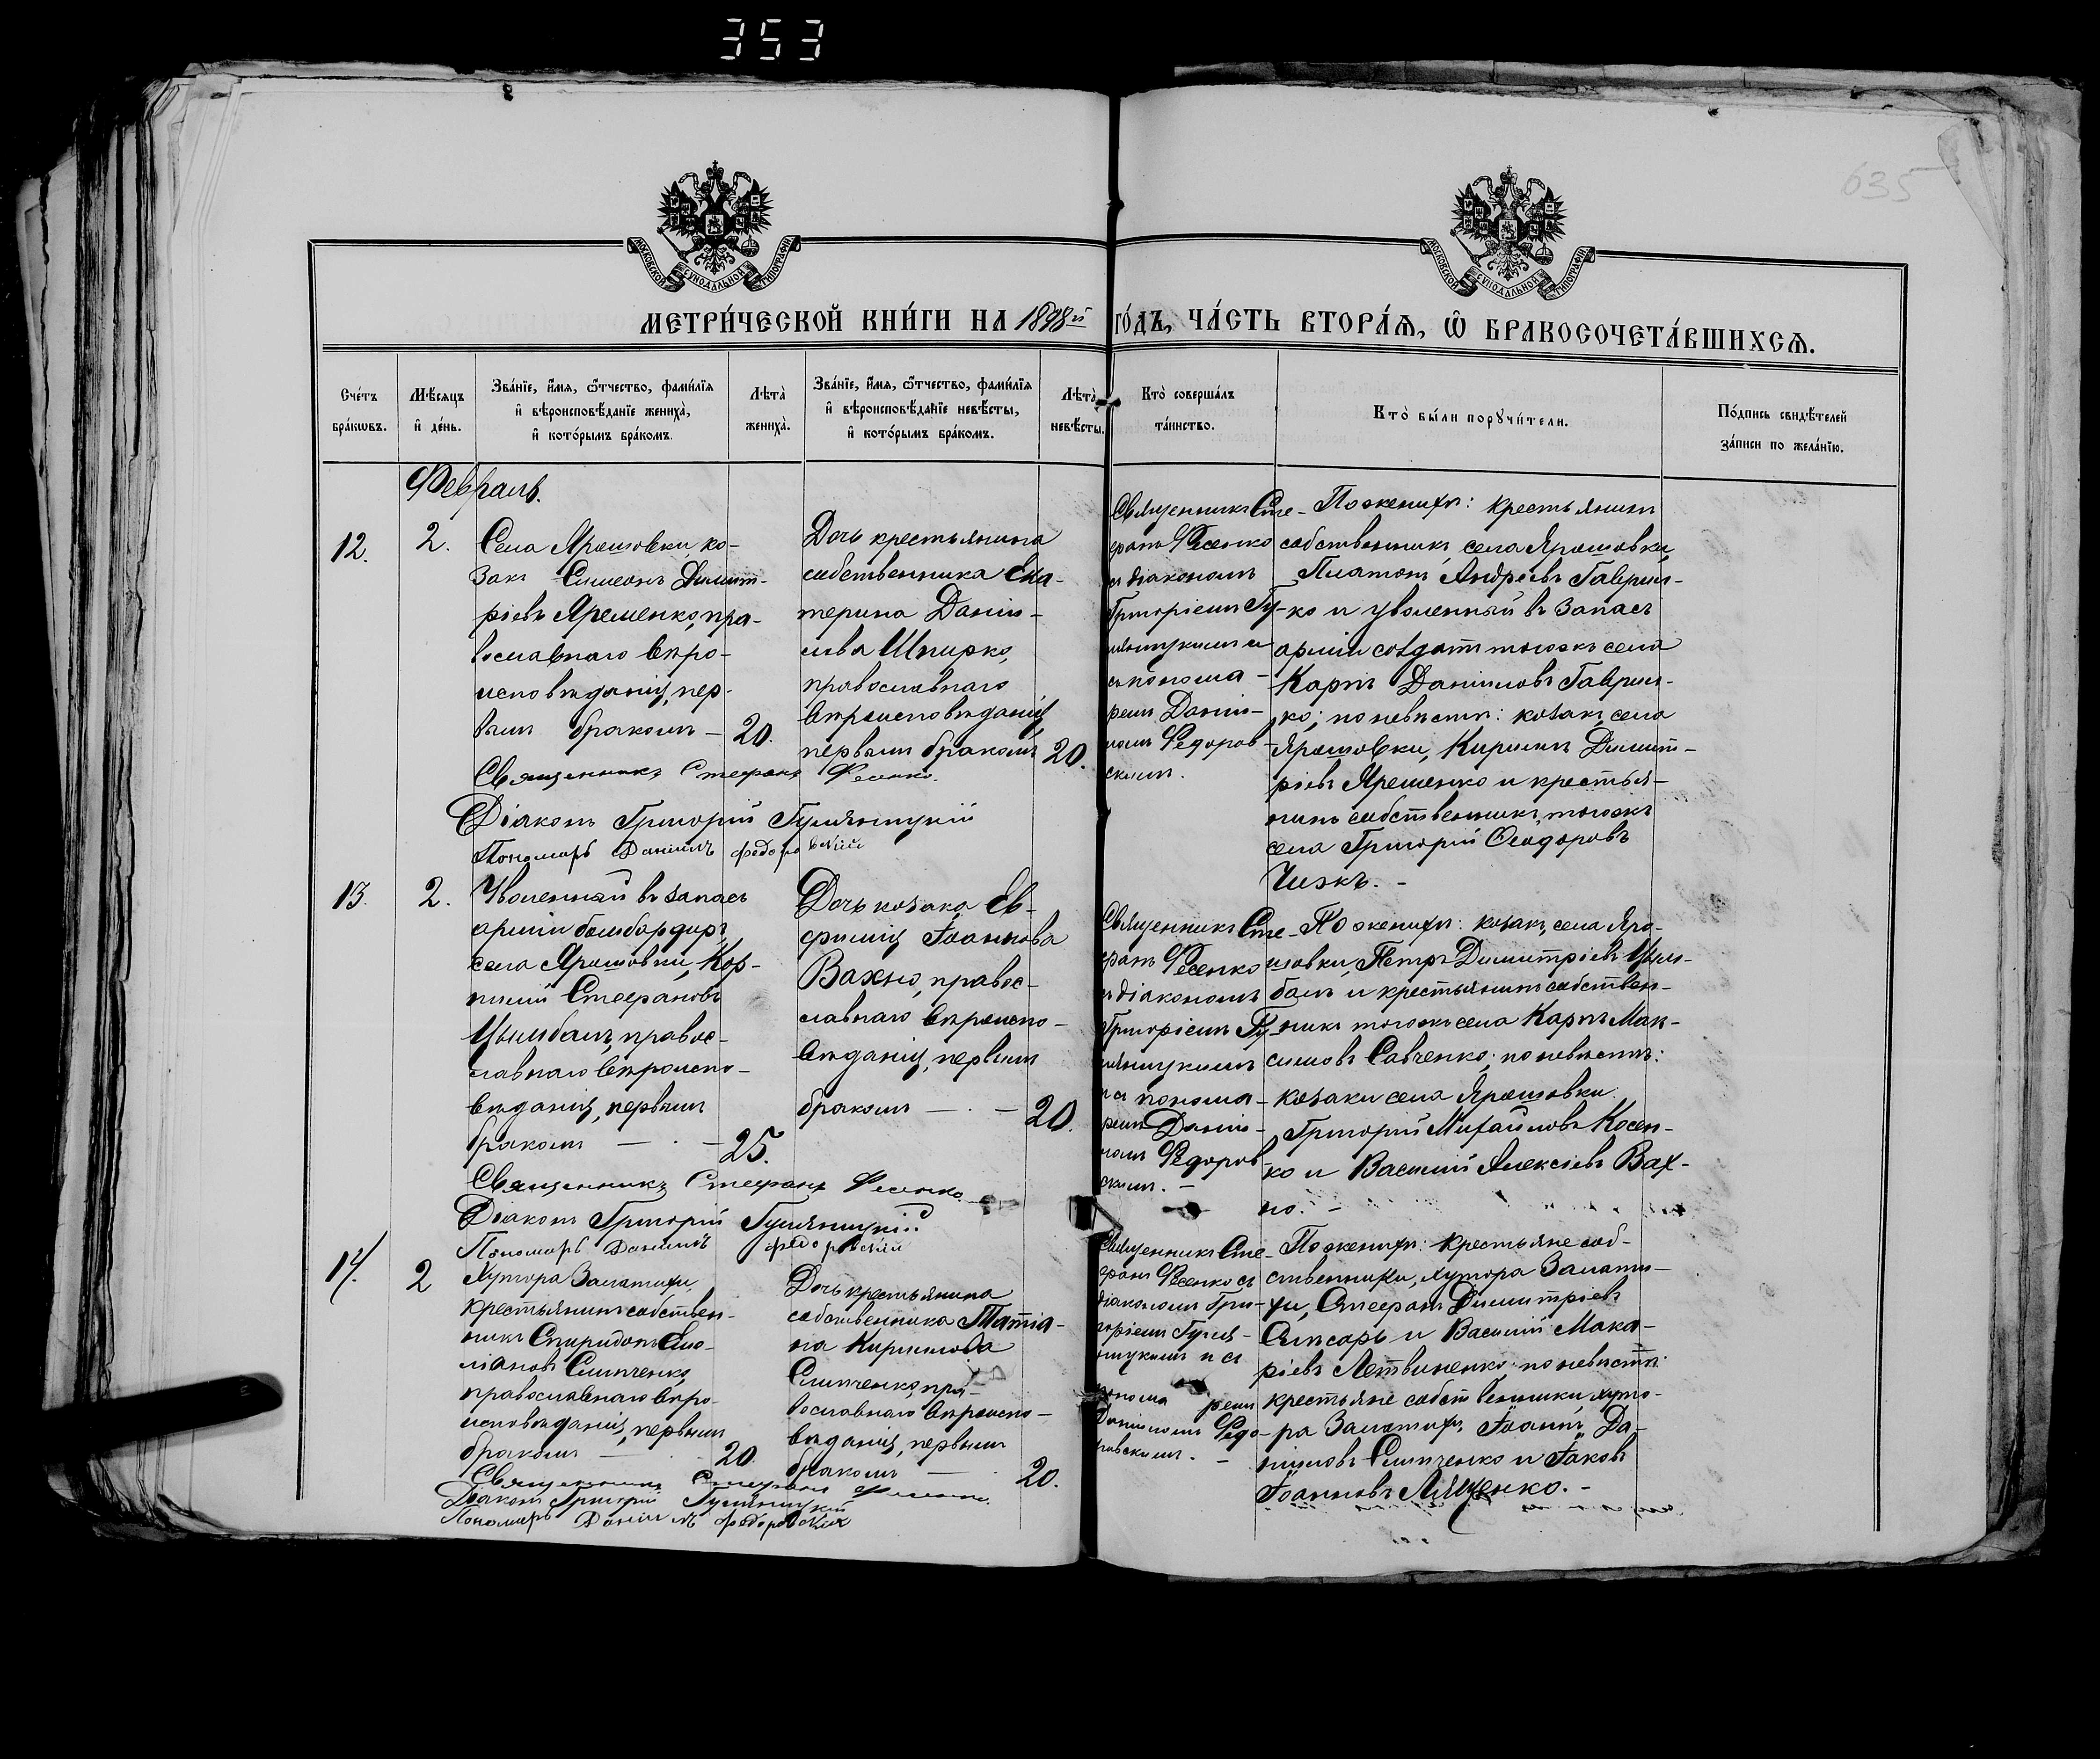 353
635
МОСКОВСКОЙ СѴНОДАЛЬНОЙ ТИПОГРАФІИ
МОСКОВСКОЙ СѴНОДАЛЬНОЙ ТИПОГРАФІИ
МЕТРИ́ЧЕСКОЙ КНИ́ГИ НА 1898й ГО́ДЪ, ЧА́СТЬ ВТОРА́Ѧ, Ѽ БРАКОСОЧЕТА́ВШИХСѦ.
Сче́тъ
бра́кѡвъ.
Мѣ́сяцъ
и҆ де́нь.
Зва́нїе, и҆́мя, ѻ҆́тчество, фами́лїя
и҆ вѣроисповѣ́данїе жениха̀,
и҆ кото́рымъ бра́комъ.
Лѣта̀
жениха̀.
Зва́нїе, и҆́мя, ѻ҆́тчество, фами́лїя
и҆ вѣроисповѣ́данїе невѣ́сты,
и҆ кото́рымъ бра́комъ.
Лѣта̀
невѣ́сты.
Кто̀ соверша́лъ
та́инство.
Кто̀ бы́ли порꙋчи́тели.
По́дпись свидѣ́телей
за́писи по жела́нїю.
Февраль.
12.
2.
Села Ярошовки, ко-
закъ Симеонъ Димит-
ріевъ Яременко, пра-
вославнаго вѣро-
исповѣданія, пер-
вымъ бракомъ –
20.
Дочь крестьянина
собственника Ека-
терина Даніи-
лова Шпирко,
православнаго
вѣроисповѣданія,
первымъ бракомъ
20.
Священникъ Сте-
фанъ Фесенко
съ діакономъ
Григоріемъ Гу-
мяницкимъ и
съ понома-
ремъ Даніи-
ломъ Федоров-
скимъ.
По женихѣ: крестьянинъ
собственникъ села Ярошовки,
Платонъ Андреевъ Гаврил-
ко и уволенный въ запасъ
арміи солдатъ тогожъ села
Карпъ Данииловъ Гаврил-
ко; по невѣстѣ: козакъ села
Ярошовки, Кириллъ Димит-
ріевъ Яременко и крестья-
нинъ собственникъ тогожъ
села Григорій Ѳеодоровъ
Чижъ. –
Священникъ Стефанъ Фесенко.
Діаконъ Григорій Гумяницкій
Пономарь Даніилъ Федоровскій
13.
2.
Уволенный въ запасъ
арміи бомбардиръ
села Ярошовки, Кор-
нилій Стефановъ
Цымбалъ, правос-
лавнаго вѣроиспо-
вѣданія, первымъ
бракомъ – . –
25.
Дочь козака Ев-
фимія Іоаннова
Вахно, правос-
лавнаго вѣроиспо-
вѣданія, первымъ
бракомъ – . –
20.
Священникъ Сте-
фанъ Фесенко
съ діакономъ
Григоріемъ Гу-
мяницкимъ
и съ понома-
ремъ Даніи-
ломъ Федоров-
скимъ. –
По женихѣ: козакъ села Яро-
шовки, Петръ Димитріевъ Цым-
балъ и крестьянинъ собствен-
никъ тогожъ села Карпъ Мак-
симовъ Савченко; по невѣстѣ:
козаки села Ярошовки:
Григорій Михайловъ Косен-
ко и Василій Алексѣевъ Вах-
но. –
Священникъ Стефанъ Фесенко
Діаконъ Григорій Гумяницкій
Пономарь Даніилъ Федоровскій
14.
2
Хутора Залатихи,
крестьянинъ собствен-
никъ Спиридонъ Еми-
ліановъ Слипченко,
православнаго вѣро-
исповѣданія, первымъ
бракомъ –
20.
Дочь крестьянина
собственника Татіа-
на Кириллова
Слипченко, пра-
вославнаго вѣроиспо-
вѣданія, первымъ
бракомъ –
20.
Священникъ Сте-
фанъ Фесенко съ
діакономъ Гри-
горіемъ Гумя-
ницкимъ и съ
понома ремъ
Данииломъ Федо-
ровскимъ. –
По женихѣ: крестьяне соб-
ственники, хутора Залати-
хи, Стефанъ Димитріевъ
Слѣсарь и Василій Мака-
ріевъ Летвиненко; по невѣстѣ:
крестьяне собственники, хуто-
ра Залатихи, Іоаннъ Да-
нииловъ Слипченко и Іаковъ
Іоанновъ Лященко. –
Священникъ Стефанъ Фесенко.
Діаконъ Григорій Гумяницкій
Пономарь Даніилъ Федоровскій